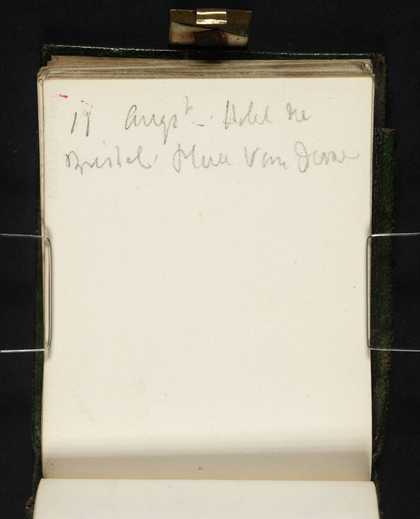 17 Augst. Hotel de
Bristol. Place Vendome